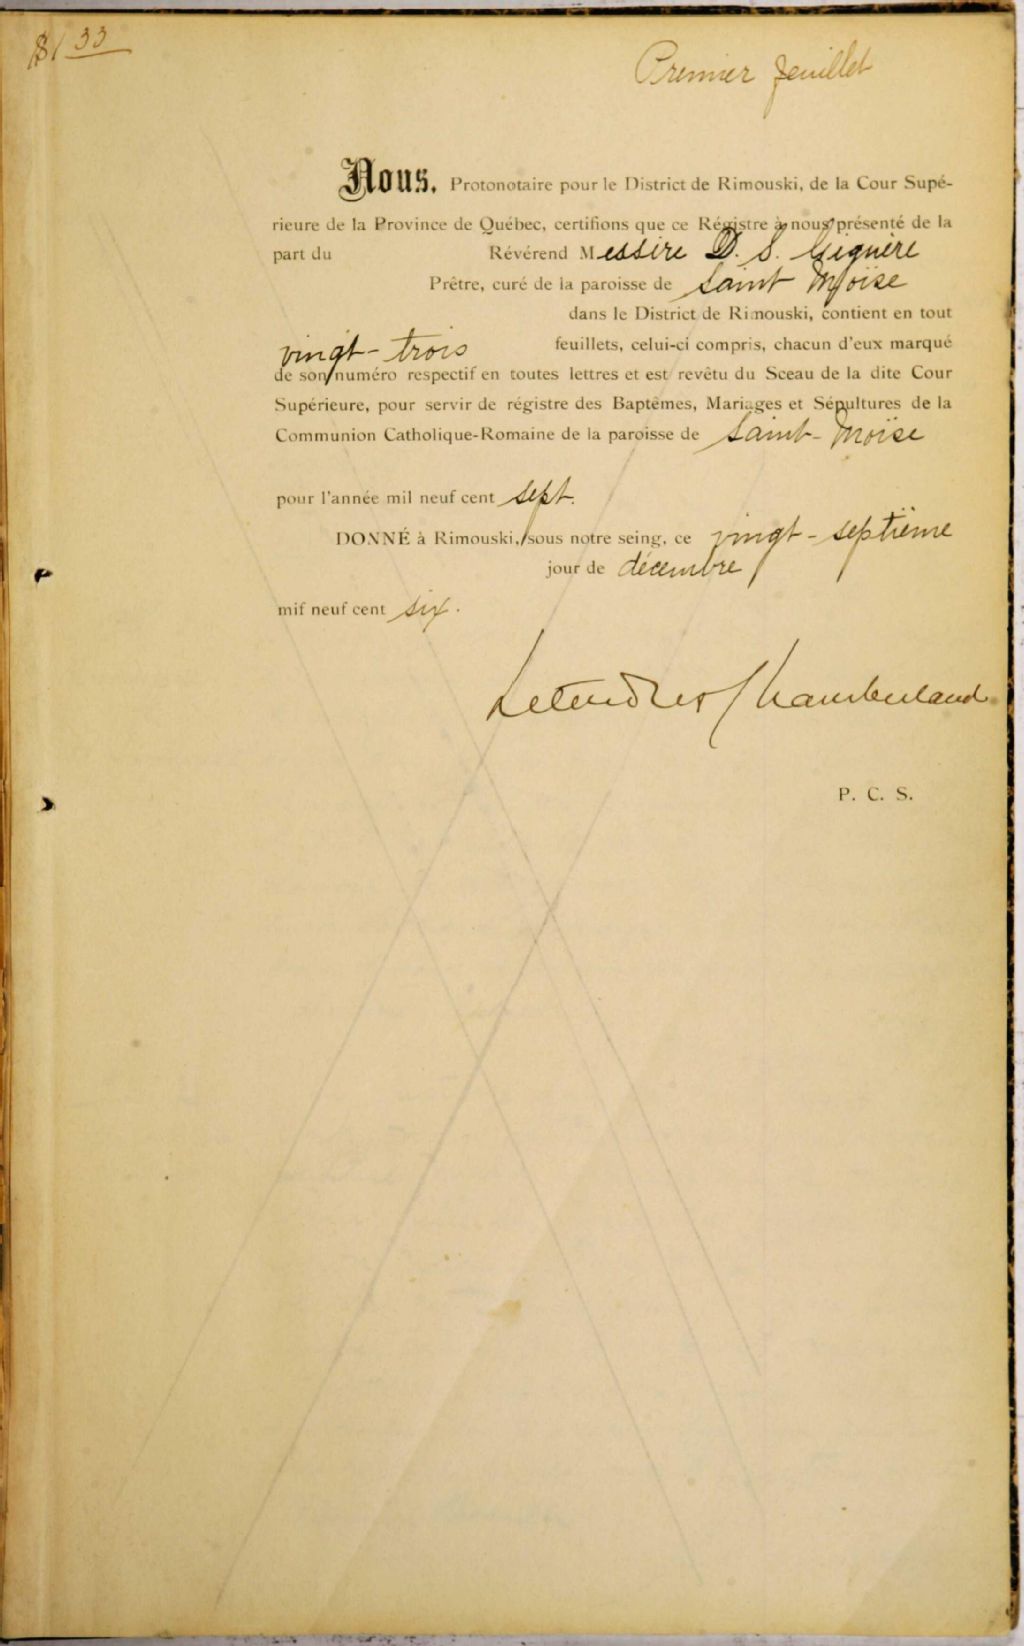 $1 33
Premier feuillet
Nous, Protonotaire pour le District de Rimouski, de la Cour Supé-
rieure de la Province de Québec, certifions que ce Régistre à nous présenté de la
part du Révérend Messire D. S. Gignère
Prêtre, curé de la paroisse de Saint Moïse
dans le District de Rimouski, contient en tout
vingt-trois feuillets, celui-ci compris, chacun d'eux marqué
de son numéro respectif en toutes lettres et est revêtu du Sceau de la dite Cour
Supérieure, pour servir de régistre des Baptêmes, Mariages et Sépultures de la
Communion Catholique-Romaine de la paroisse de Saint-Moïse
pour l'année mil neuf cent sept.
DONNÉ à Rimouski, sous notre seing, ce vingt-septième
jour de décembre
mif neuf cent six.
Letendre & Chamberland
P. C. S.